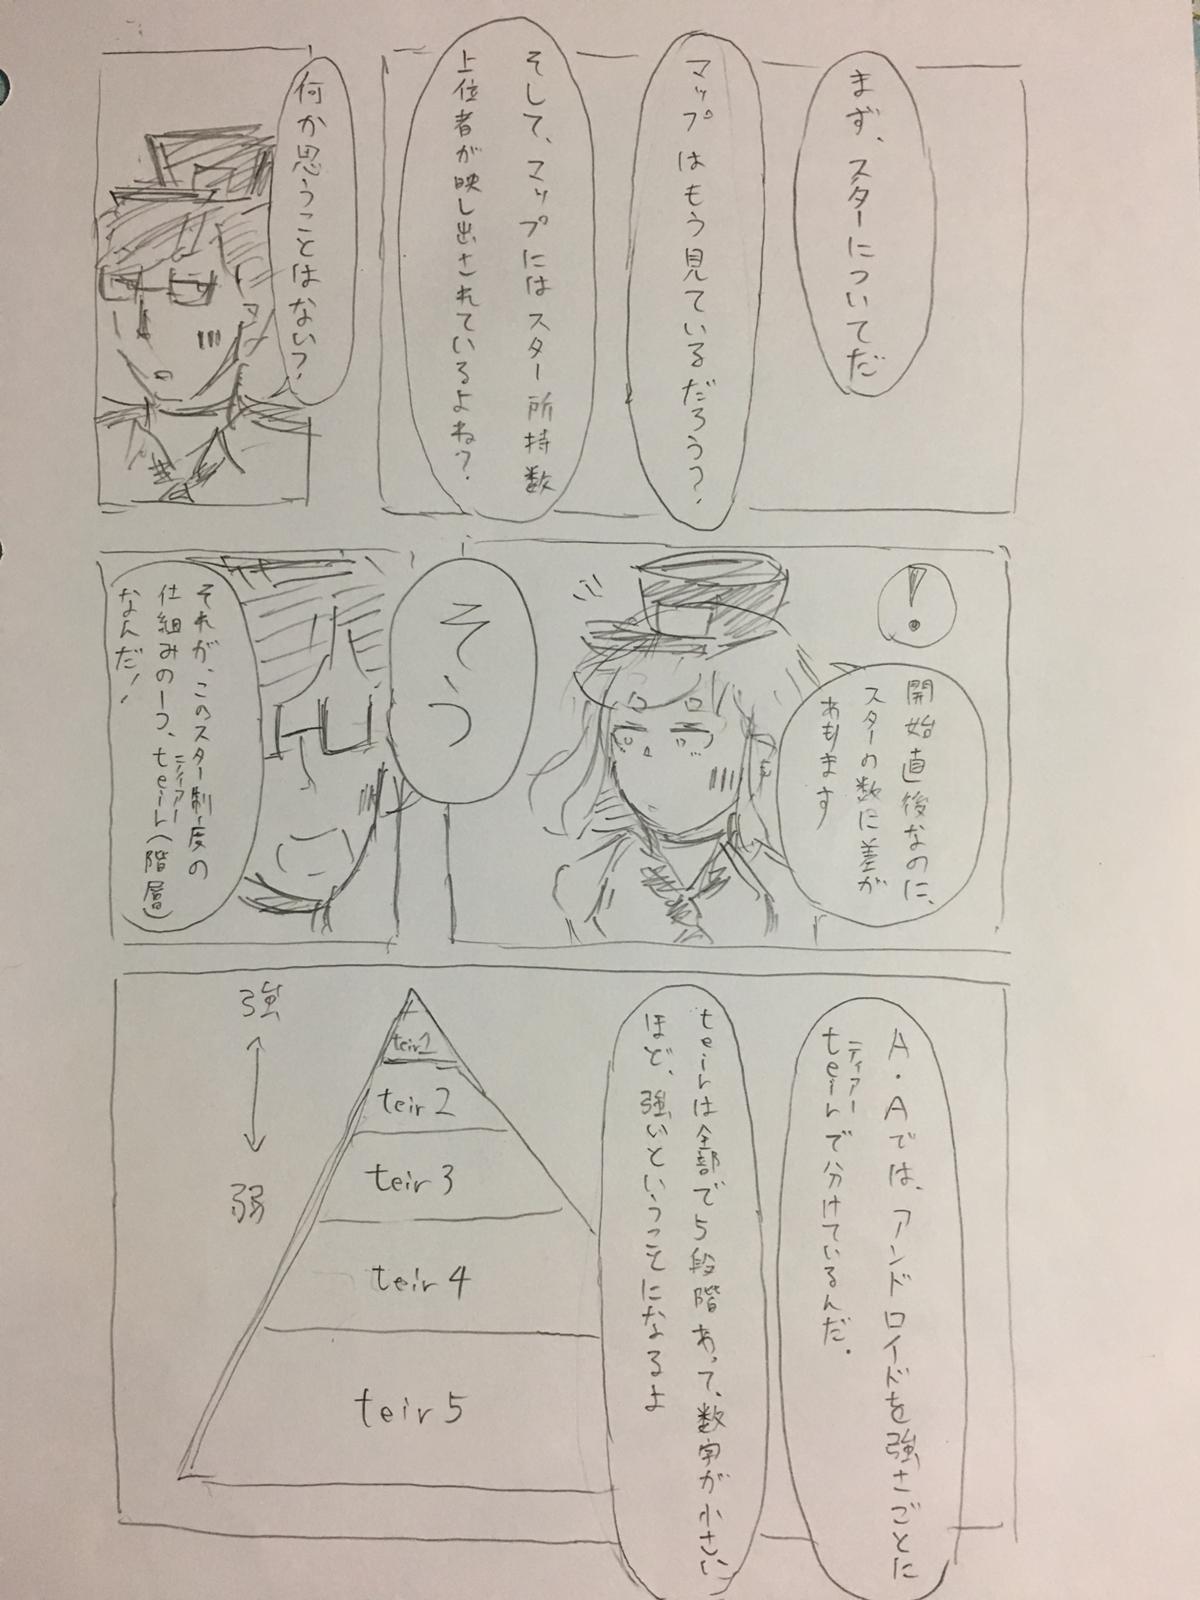 まず、スターについてだ
マップはもう見ているだろう?
そして、マップにはスター所持数
上位者が映し出されているよね?
何か思うことはない?
!
開始直後なのに、
スターの数に差が
あります
そう
それが、このスター制度の
仕組みの一つ、teir(階層)
ティアー
なんだ!
A.Aでは、アンドロイドを強さごとに
teirで分けているんだ.
ティアー
teirは全部で5段階あって、数字が小さい
ほど、強いということになるよ
強
弱
teir1
teir2
teir3
teir4
teir5